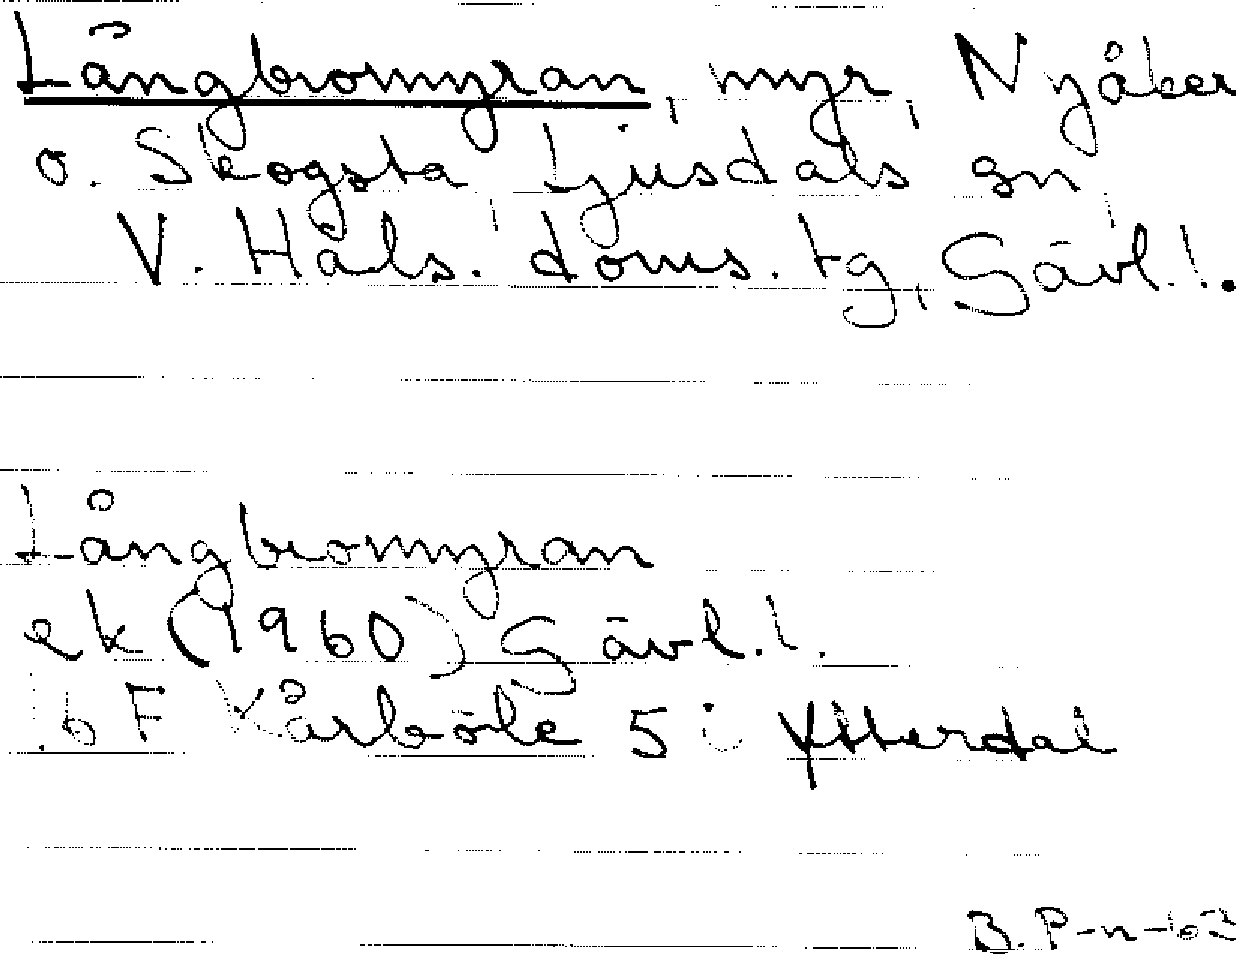 Långbromyran, myr, Nyåker
o. Skogsta, Ljusdals sn,
V. Häls. doms. tg, Gävl. l.
Långbromyran
ek (1960) Gävl. l.
bF Kårböle 5 i Ytterdal
B. P-n-63